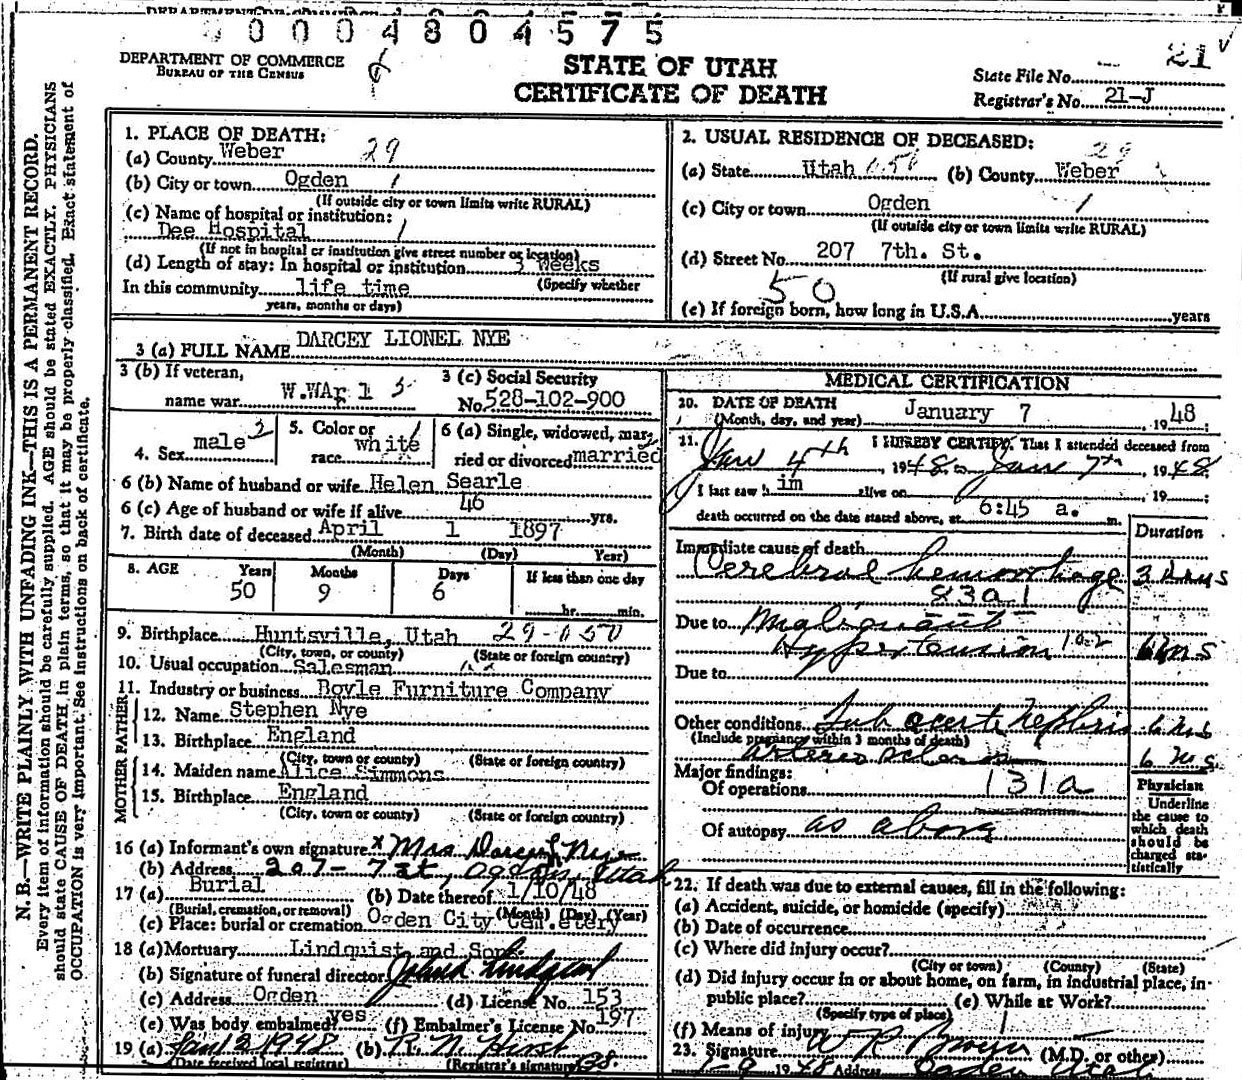 0004804575
DEPARTMENT OF COMMERCE
BUREAU OF THE CENSUS
STATE OF UTAH
CERTIFICATE OF DEATH
21
State File No.
Registrar's No. 21-J
N. B.—WRITE PLAINLY WITH UNFADING INK—THIS IS A PERMANENT RECORD.
Every item of information should be carefully supplied. AGE should be stated EXACTLY. PHYSICIANS
should state CAUSE OF DEATH in plain terms, so that it may be properly classified. Exact statement of
OCCUPATION is very important. See instructions on back of certificate.
1. PLACE OF DEATH:
(a) County Weber 29
(b) City or town Ogden 1
(If outside city or town limits write RURAL)
(c) Name of hospital or institution:
Dee Hospital 1
(If not in hospital or institution give street number or location)
(d) Length of stay: In hospital or institution 3 weeks
(Specify whether
In this community life time
years, months or days)
2. USUAL RESIDENCE OF DECEASED:
29
(a) State Utah 050 (b) County Weber
(c) City or town Ogden 1
(If outside city or town limits write RURAL)
(d) Street No. 207 7th. St.
(If rural give location)
50
(e) If foreign born, how long in U.S.A. years
3 (a) FULL NAME DARCEY LIONEL NYE
3 (b) If veteran,
name war W.WAr 1
3 (c) Social Security
No. 528-102-900
4. Sex male
5. Color or
race white
6 (a) Single, widowed, mar-
ried or divorced married
6 (b) Name of husband or wife Helen Searle
6 (c) Age of husband or wife if alive 46 yrs.
7. Birth date of deceased April 1 1897
(Month) (Day) Year)
8. AGE Years Months Days If less than one day
50 9 6 hr. min.
9. Birthplace Huntsville, Utah 29-050
(City, town, or county) (State or foreign country)
10. Usual occupation Salesman
11. Industry or business Boyle Furniture Company
FATHER
12. Name Stephen Nye
13. Birthplace England
(City, town or county) (State or foreign country)
MOTHER
14. Maiden name Alice Simmons
15. Birthplace England
(City, town or county) (State or foreign country)
16 (a) Informant's own signature x Mrs Darcey Nye
(b) Address 207-7 st, Ogden, Utah
17 (a) Burial (b) Date thereof 1/10/48
(Burial, cremation, or removal) (Month) (Day) (Year)
(c) Place: burial or cremation Ogden City Cemetery
18 (a) Mortuary Lindquist and Sons
(b) Signature of funeral director Lindquist
(c) Address Ogden (d) License No. 153
(e) Was body embalmed? yes (f) Embalmer's License No. 197
19 (a) 1948 (b)
(Date received local registrar) (Registrar's signature)
MEDICAL CERTIFICATION
20. DATE OF DEATH
(Month, day, and year) January 7 , 1948
21. I HEREBY CERTIFY, That I attended deceased from
Jan 4th , 1948 to Jan 7th , 1948
I last saw him alive on , 19 ;
death occurred on the date stated above, at 6:45 a. m.
Duration
Immediate cause of death
Cerebral hemorrhage 3 days
83a1
Due to Malignant
Hypertension 102 6 ms
Due to
Other conditions Sub acute Nephritis 6 ms
(Include pregnancy within 3 months of death)
arterio sclerosis 6 ms
Major findings:
Of operations 131a
Of autopsy as above
Physician
Underline
the cause to
which death
should be
charged sta-
tistically
22. If death was due to external causes, fill in the following:
(a) Accident, suicide, or homicide (specify)
(b) Date of occurrence
(c) Where did injury occur?
(City or town) (County) (State)
(d) Did injury occur in or about home, on farm, in industrial place, in
public place? (e) While at Work?
(Specify type of place)
(f) Means of injury
23. Signature (M.D. or other)
1-9 1948 Address Ogden Utah